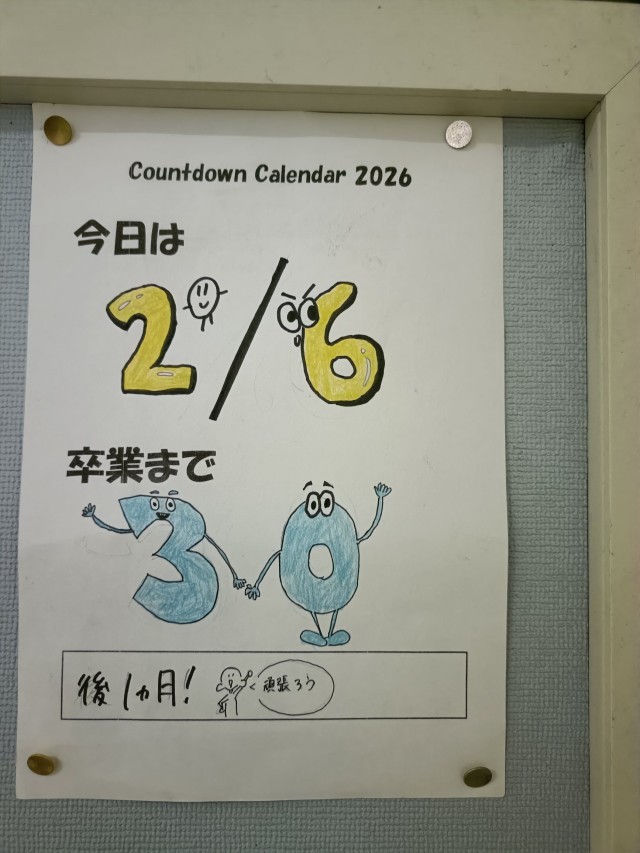 Countdown Calendar 2026
今日は
2/6
卒業まで
30
後1ヵ月!
頑張ろう